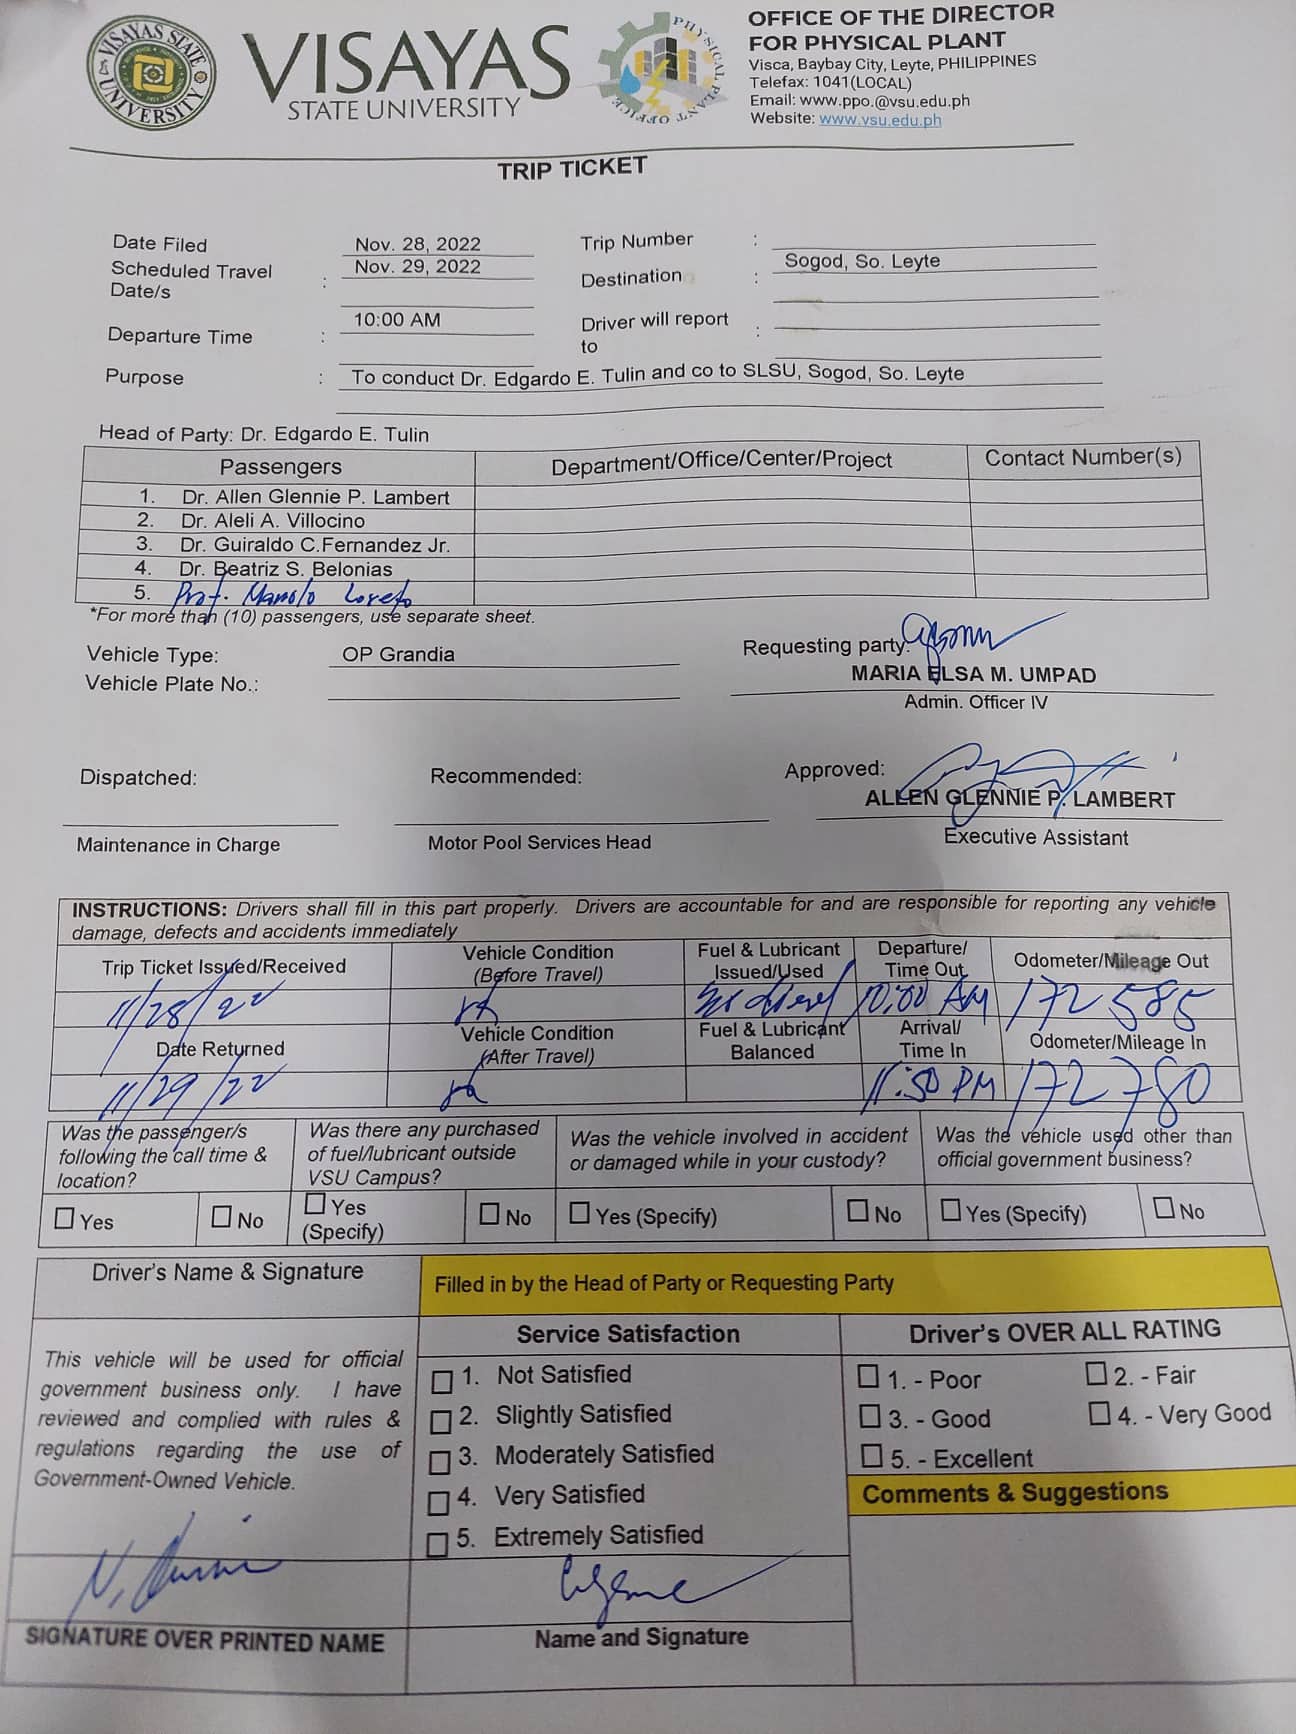 VISAYAS STATE UNIVERSITY
VISAYAS
STATE UNIVERSITY
PHYSICAL PLANT OFFICE
OFFICE OF THE DIRECTOR
FOR PHYSICAL PLANT
Visca, Baybay City, Leyte, PHILIPPINES
Telefax: 1041(LOCAL)
Email: www.ppo.@vsu.edu.ph
Website: www.vsu.edu.ph
TRIP TICKET
Date Filed Nov. 28, 2022 Trip Number :
Scheduled Travel Date/s : Nov. 29, 2022 Destination : Sogod, So. Leyte
Departure Time : 10:00 AM Driver will report to :
Purpose : To conduct Dr. Edgardo E. Tulin and co to SLSU, Sogod, So. Leyte
Head of Party: Dr. Edgardo E. Tulin
Passengers Department/Office/Center/Project Contact Number(s)
1. Dr. Allen Glennie P. Lambert
2. Dr. Aleli A. Villocino
3. Dr. Guiraldo C.Fernandez Jr.
4. Dr. Beatriz S. Belonias
5. Prof. Manolo Loreto
*For more than (10) passengers, use separate sheet.
Vehicle Type: OP Grandia Requesting party:
Vehicle Plate No.: MARIA ELSA M. UMPAD
Admin. Officer IV
Dispatched: Recommended: Approved:
ALLEN GLENNIE P. LAMBERT
Maintenance in Charge Motor Pool Services Head Executive Assistant
INSTRUCTIONS: Drivers shall fill in this part properly. Drivers are accountable for and are responsible for reporting any vehicle
damage, defects and accidents immediately
Trip Ticket Issued/Received Vehicle Condition (Before Travel) Fuel & Lubricant Issued/Used Departure/ Time Out Odometer/Mileage Out
11/28/22 10:00 AM 172 585
Date Returned Vehicle Condition (After Travel) Fuel & Lubricant Balanced Arrival/ Time In Odometer/Mileage In
11/29/22 11:50 PM 172780
Was the passenger/s following the call time & location? Was there any purchased of fuel/lubricant outside VSU Campus? Was the vehicle involved in accident or damaged while in your custody? Was the vehicle used other than official government business?
Yes No Yes (Specify) No Yes (Specify) No Yes (Specify) No
Driver's Name & Signature Filled in by the Head of Party or Requesting Party
This vehicle will be used for official
government business only. I have
reviewed and complied with rules &
regulations regarding the use of
Government-Owned Vehicle.
SIGNATURE OVER PRINTED NAME
Service Satisfaction
1. Not Satisfied
2. Slightly Satisfied
3. Moderately Satisfied
4. Very Satisfied
5. Extremely Satisfied
Name and Signature
Driver's OVER ALL RATING
1. - Poor 2. - Fair
3. - Good 4. - Very Good
5. - Excellent
Comments & Suggestions